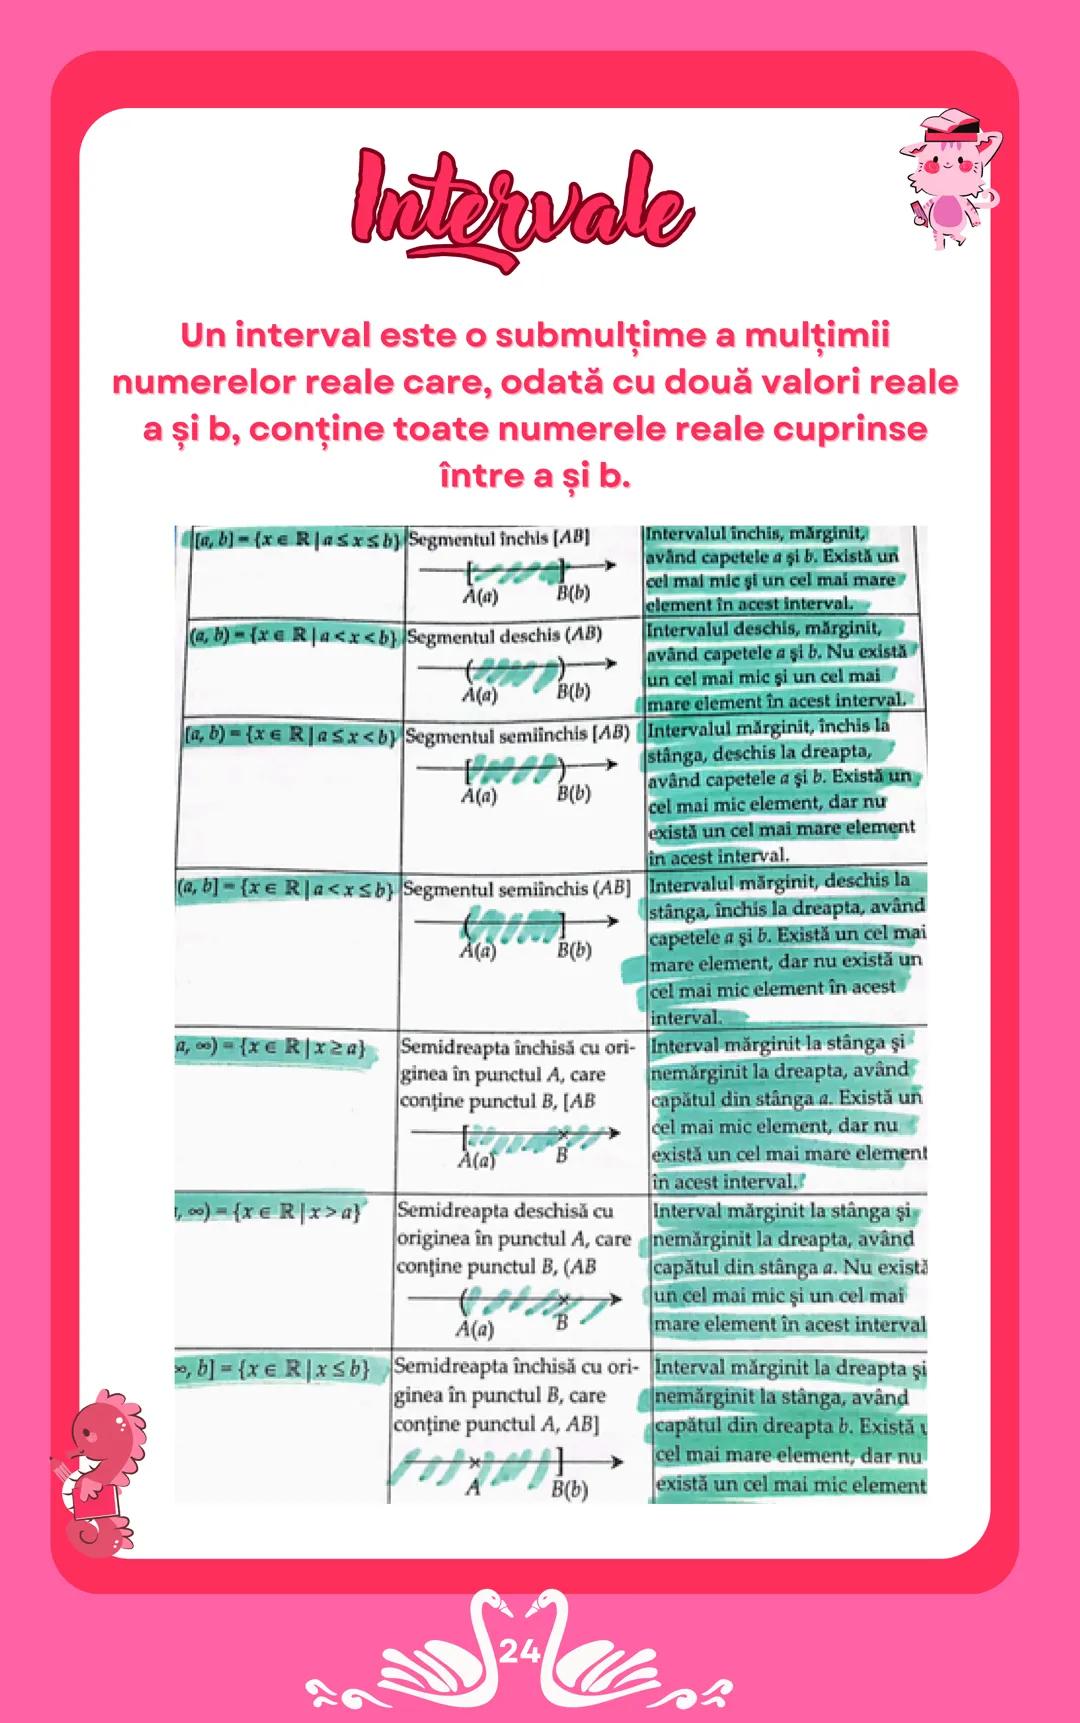 Intervale
Un interval este o submulțime a mulțimii
numerelor reale care, odată cu două valori reale
a și b, conține toate numerele reale cuprinse
între a și b.
[a, b] = {x ∈ ℝ | a ≤ x ≤ b}
Segmentul închis [AB]
A(a) B(b)
Intervalul închis, mărginit,
având capetele a și b. Există un
cel mai mic și un cel mai mare
element în acest interval.
(a, b) = {x ∈ ℝ | a < x < b}
Segmentul deschis (AB)
A(a) B(b)
Intervalul deschis, mărginit,
având capetele a și b. Nu există
un cel mai mic și un cel mai
mare element în acest interval.
[a, b) = {x ∈ ℝ | a ≤ x < b}
Segmentul semiînchis [AB)
A(a) B(b)
Intervalul mărginit, închis la
stânga, deschis la dreapta,
având capetele a și b. Există un
cel mai mic element, dar nu
există un cel mai mare element
în acest interval.
(a, b] = {x ∈ ℝ | a < x ≤ b}
Segmentul semiînchis (AB]
A(a) B(b)
Intervalul mărginit, deschis la
stânga, închis la dreapta, având
capetele a și b. Există un cel mai
mare element, dar nu există un
cel mai mic element în acest
interval.
a, ∞) = {x ∈ ℝ | x ≥ a}
Semidreapta închisă cu ori-
ginea în punctul A, care
conține punctul B, [AB
A(a) B
Interval mărginit la stânga și
nemărginit la dreapta, având
capătul din stânga a. Există un
cel mai mic element, dar nu
există un cel mai mare element
în acest interval.
, ∞) = {x ∈ ℝ | x > a}
Semidreapta deschisă cu
originea în punctul A, care
conține punctul B, (AB
A(a) B
Interval mărginit la stânga și
nemărginit la dreapta, având
capătul din stânga a. Nu există
un cel mai mic și un cel mai
mare element în acest interval
∞, b] = {x ∈ ℝ | x ≤ b}
Semidreapta închisă cu ori-
ginea în punctul B, care
conține punctul A, AB]
A B(b)
Interval mărginit la dreapta și
nemărginit la stânga, având
capătul din dreapta b. Există
cel mai mare element, dar nu
există un cel mai mic element
24